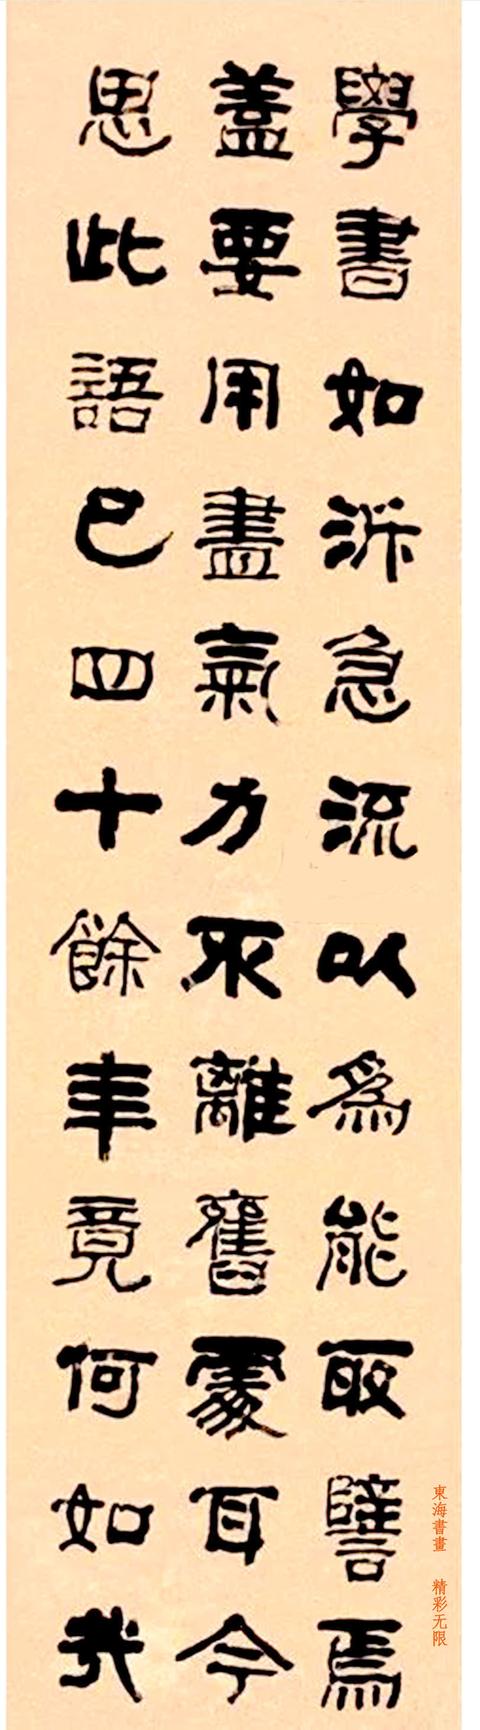 學書如泝急流以爲能取譬焉
蓋要用盡氣力不離舊處耳今
思此語已四十餘年竟何如哉
東海書畫 精彩无限